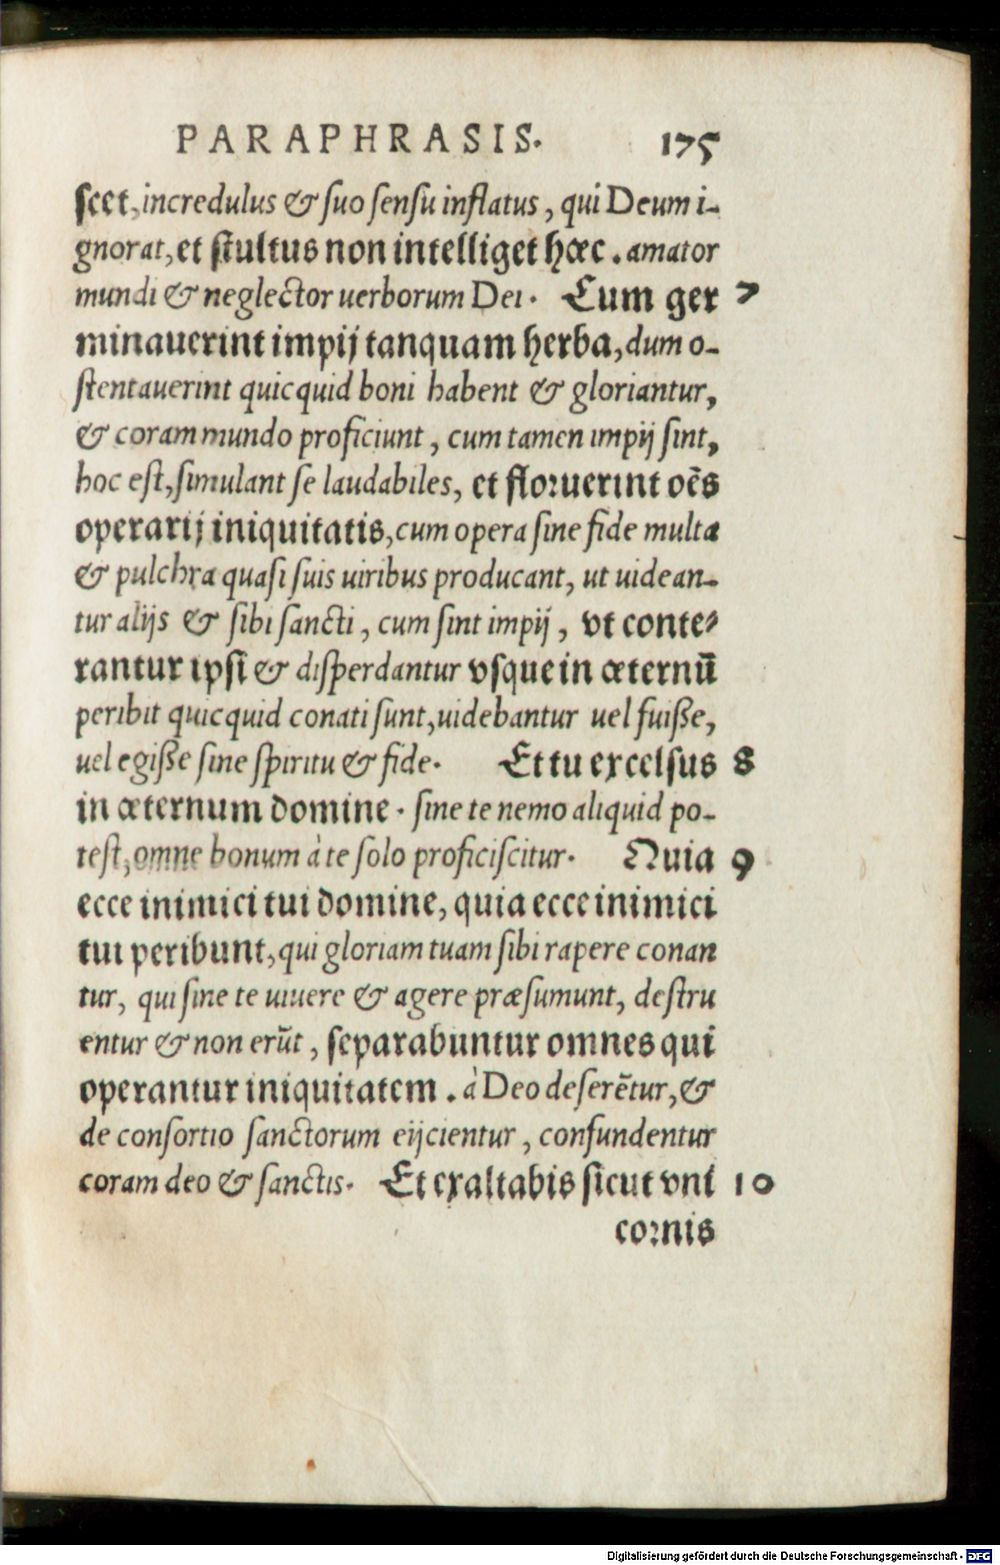 PARAPHRASIS. 175
scet, incredulus & suo sensu inflatus, qui Deum i-
gnorat, et stultus non intelliget hæc. amator
mundi & neglector uerborum Dei. Cum ger 7
minauerint impij tanquam herba, dum o-
stentauerint quicquid boni habent & gloriantur,
& coram mundo proficiunt, cum tamen impij sint,
hoc est, simulant se laudabiles, et floruerint oēs
operarij iniquitatis, cum opera sine fide multa
& pulchra quasi suis uiribus producant, ut uidean-
tur alijs & sibi sancti, cum sint impij, vt conte-
rantur ipsi & disperdantur vsque in æternū
peribit quicquid conati sunt, uidebantur uel fuisse,
uel egisse sine spiritu & fide. Et tu excelsus 8
in æternum domine. sine te nemo aliquid po-
test, omne bonum à te solo proficiscitur. Quia 9
ecce inimici tui domine, quia ecce inimici
tui peribunt, qui gloriam tuam sibi rapere conan
tur, qui sine te uiuere & agere præsumunt, destru
entur & non erūt, separabuntur omnes qui
operantur iniquitatem. à Deo deserētur, &
de consortio sanctorum eijcientur, confundentur
coram deo & sanctis. Et exaltabis sicut vni 10
cornis
Digitalisierung gefördert durch die Deutsche Forschungsgemeinschaft - DFG